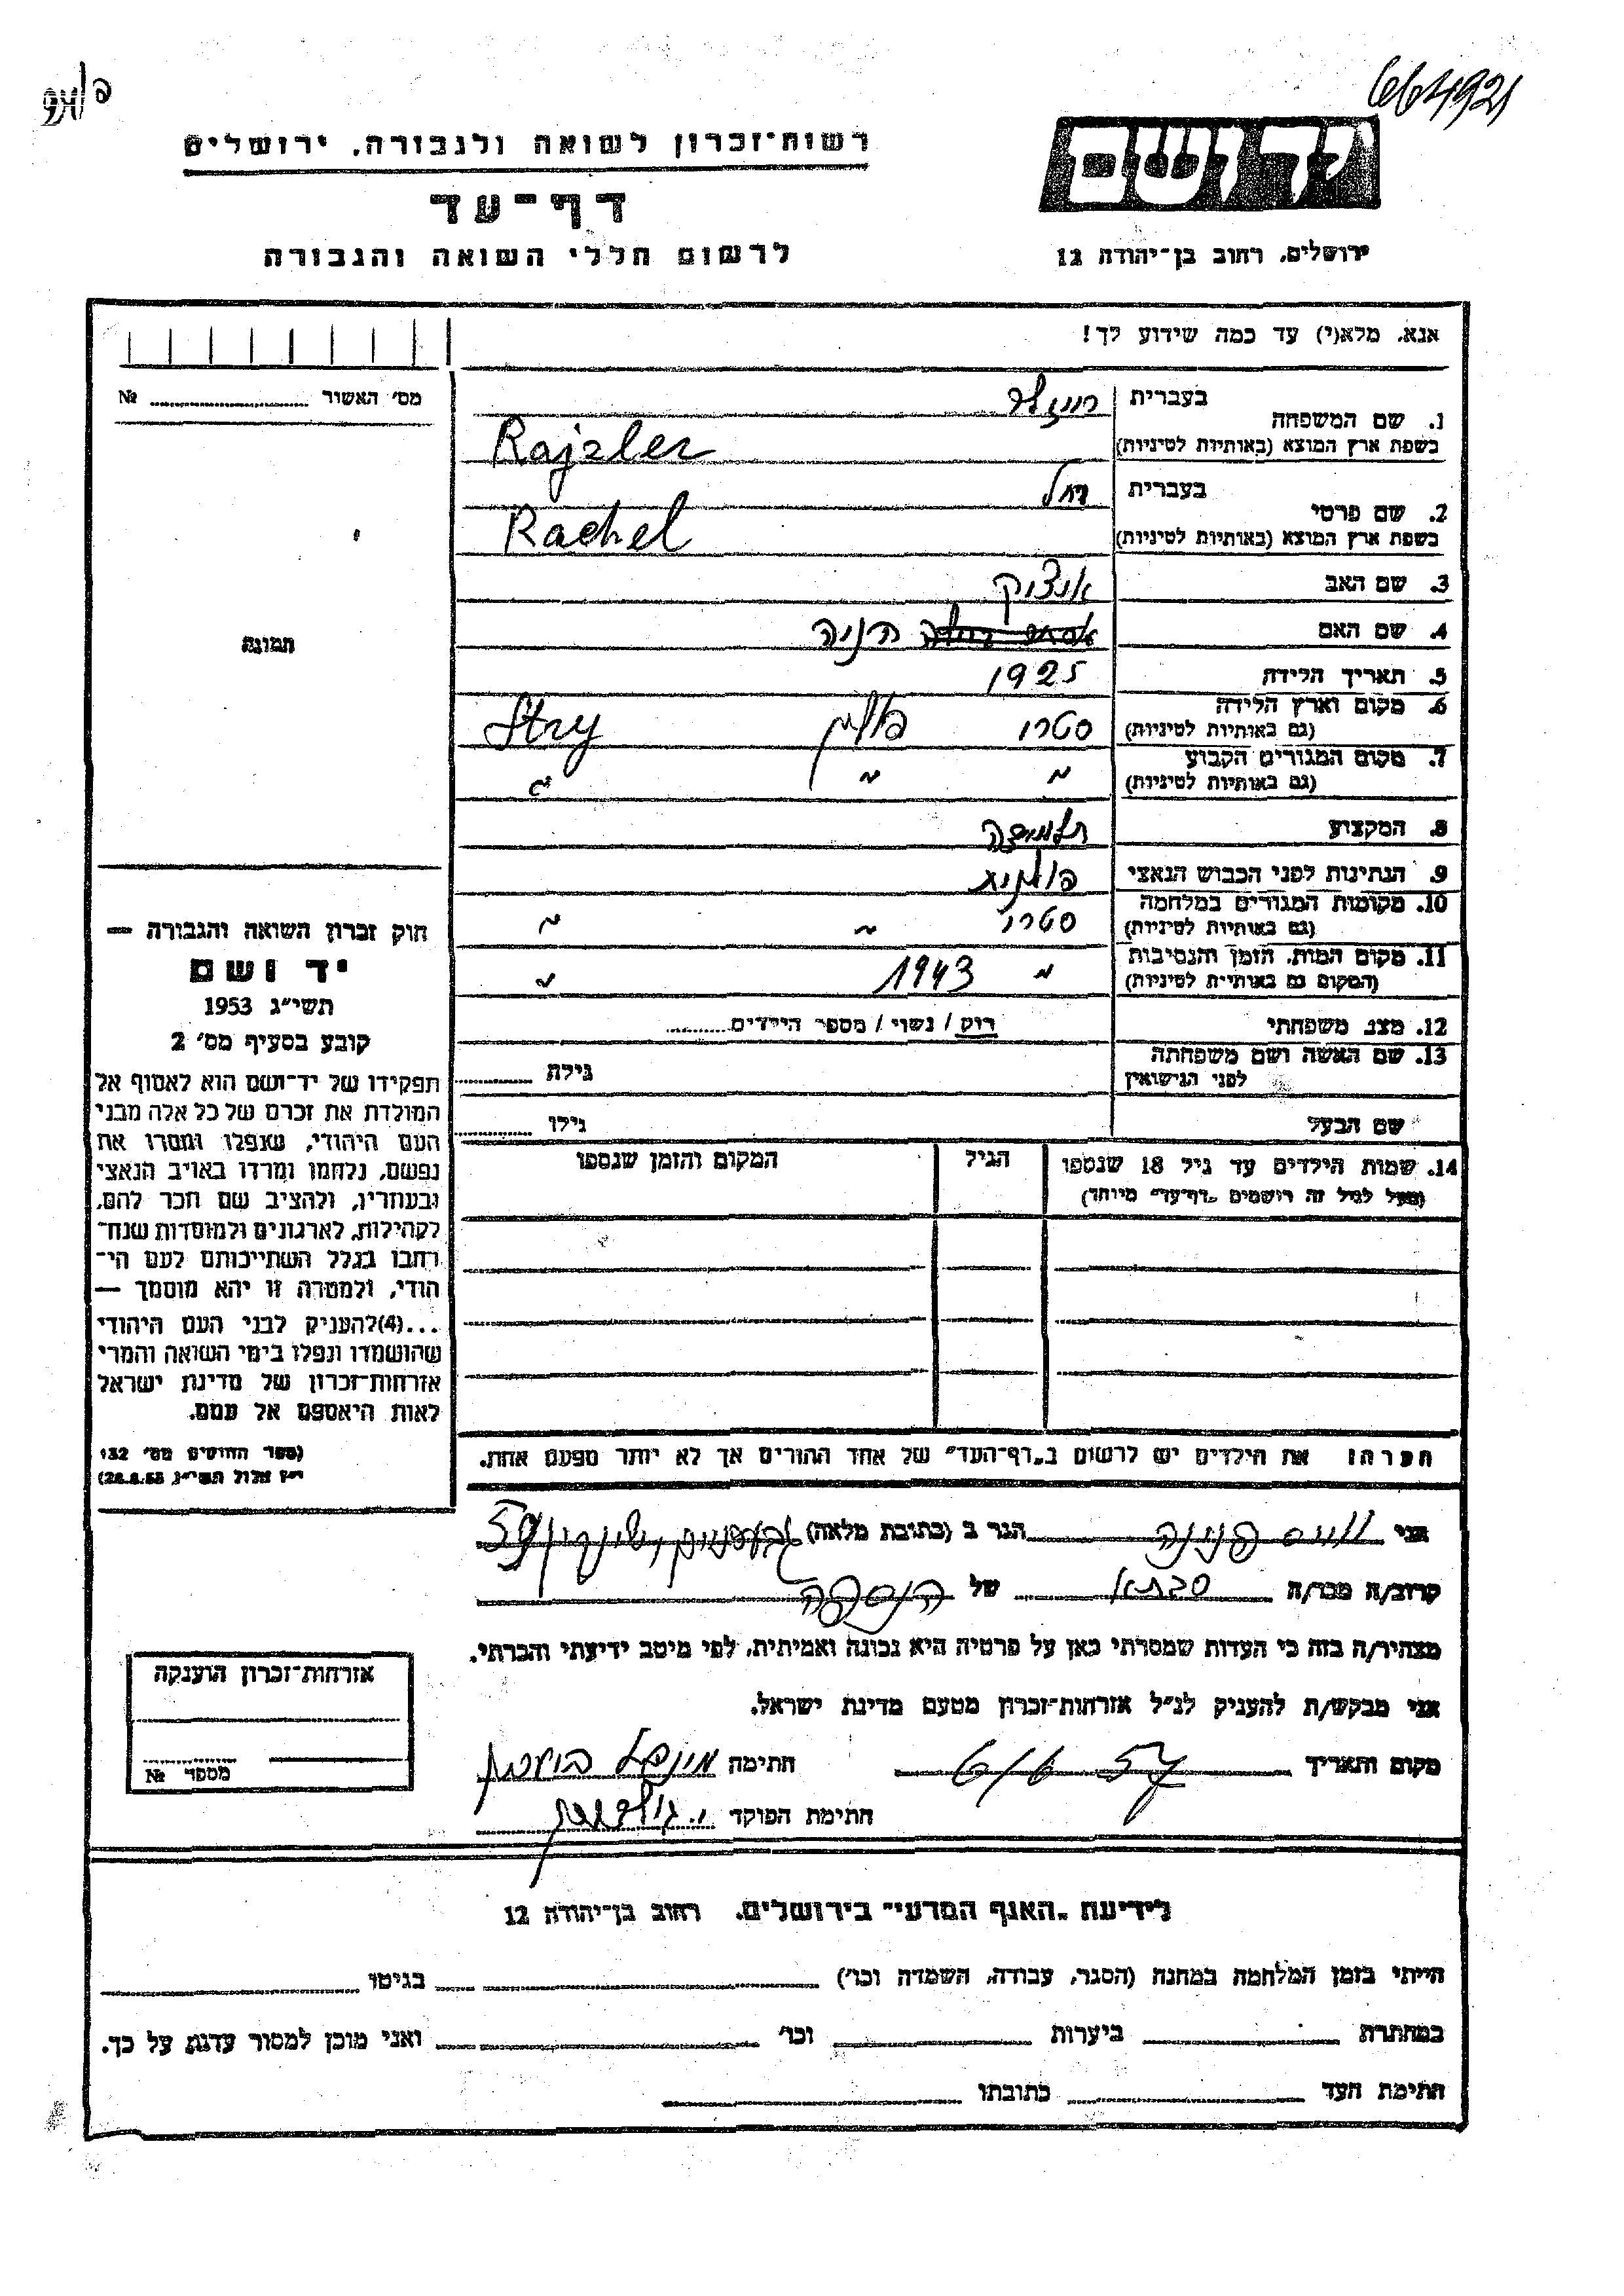 664921
יד ושם
רשות־זכרון לשואה ולגבורה, ירושלים
דף־עד
לרשום חללי השואה והגבורה
ירושלים, רחוב בן־יהודה 12
אנא, מלא(י) עד כמה שידוע לך!
מס׳ האשור ........ №
תמונה
1. שם המשפחה בעברית רייזלר
בשפת ארץ המוצא (באותיות לטיניות) Rajzler
2. שם פרטי בעברית רחל
בשפת ארץ המוצא (באותיות לטיניות) Rachel
3. שם האב איציק
4. שם האם הניה
5. תאריך הלידה 1925
6. מקום וארץ הלידה (גם באותיות לטיניות) סטרי פולין Stry
7. מקום המגורים הקבוע (גם באותיות לטיניות) " " "
8. המקצוע תלמידה
9. הנתינות לפני הכבוש הנאצי פולנית
10. מקומות המגורים במלחמה (גם באותיות לטיניות) סטרי " "
11. מקום המות, הזמן והנסיבות (המקום גם באותיות לטיניות) " 1943 "
12. מצב משפחתי רוק / נשוי / מספר הילדים........
13. שם האשה ושם משפחתה לפני הנישואין גילה ........
שם הבעל גילו ........
14. שמות הילדים עד גיל 18 שנספו הגיל המקום והזמן שנספו
(מעל לגיל זה רושמים „דף־עד״ מיוחד)
הערה: את הילדים יש לרשום ב„דף־העד״ של אחד ההורים אך לא יותר מפעם אחת.
חוק זכרון השואה והגבורה —
יד ושם
תשי״ג 1953
קובע בסעיף מס׳ 2
תפקידו של יד־ושם הוא לאסוף אל
המולדת את זכרם של כל אלה מבני
העם היהודי, שנפלו ומסרו את
נפשם, נלחמו ומרדו באויב הנאצי
ובעוזריו, ולהציב שם וזכר להם,
לקהילות, לארגונים ולמוסדות שנח־
רבו בגלל השתייכותם לעם הי־
הודי, ולמטרה זו יהא מוסמך —
...(4)להעניק לבני העם היהודי
שהושמדו ונפלו בימי השואה והמרי
אזרחות־זכרון של מדינת ישראל
לאות היאספם אל עמם.
(ספר החוקים מס׳ 132
י״ז אלול תשי״ג, 28.8.53)
אני פנינה הגר ב (כתובת מלאה) 59
קרוב/ה מכר/ה סבתא של הנספה
מצהיר/ה בזה כי העדות שמסרתי כאן על פרטיה היא נכונה ואמיתית, לפי מיטב ידיעתי והכרתי.
אני מבקש/ת להעניק לנ״ל אזרחות־זכרון מטעם מדינת ישראל.
מקום ותאריך 6/6 57 חתימה
חתימת הפוקד
אזרחות־זכרון הוענקה
מספר №
לידיעת „האגף המדעי״ בירושלים, רחוב בן־יהודה 12
הייתי בזמן המלחמה במחנה (הסגר, עבודה, השמדה וכו׳) בגיטו
במחתרת ביערות וכו׳ ואני מוכן למסור עדות על כך.
חתימת העד כתובתו